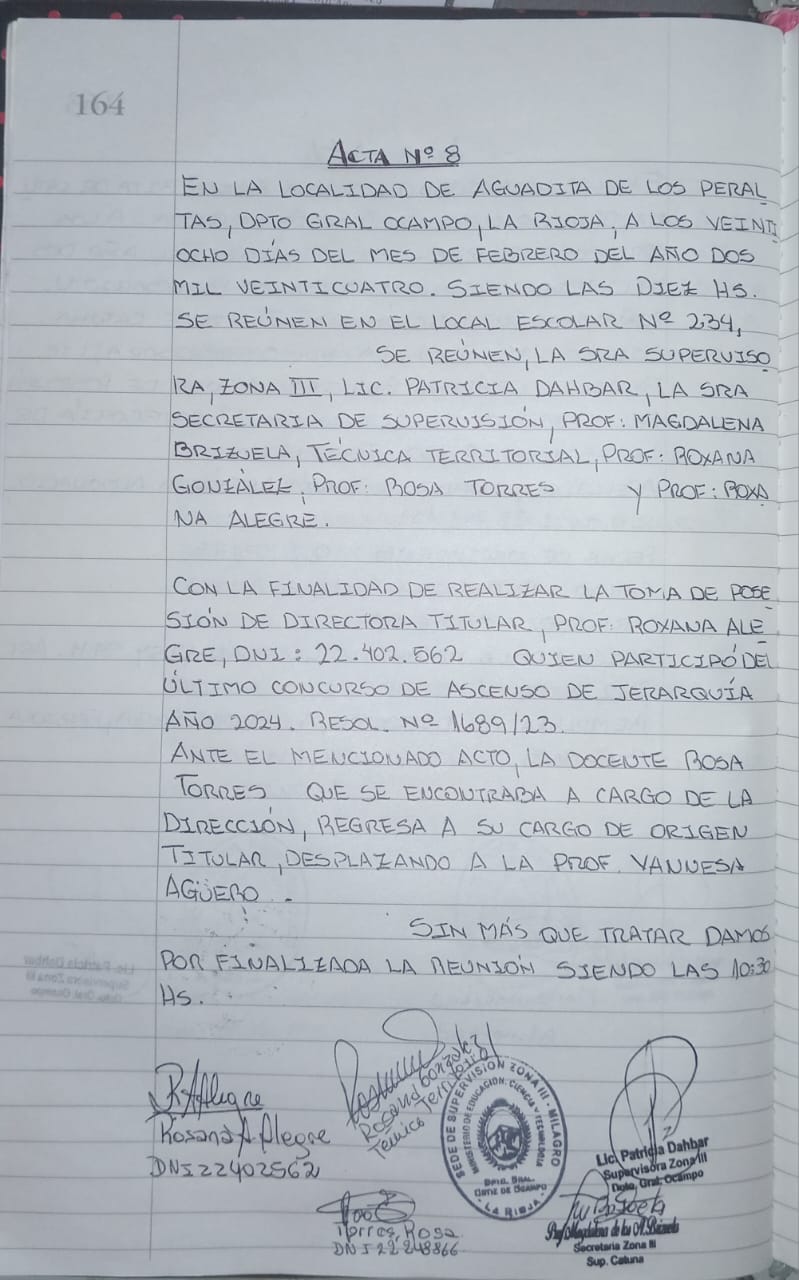 164
ACTA Nº 8
EN LA LOCALIDAD DE AGUADITA DE LOS PERAL
TAS, DPTO GRAL OCAMPO, LA RIOJA, A LOS VEINTI
OCHO DÍAS DEL MES DE FEBRERO DEL AÑO DOS
MIL VEINTICUATRO. SIENDO LAS DIEZ HS.
SE REÚNEN EN EL LOCAL ESCOLAR Nº 234,
SE REÚNEN, LA SRA SUPERVISO
RA, ZONA III, LIC. PATRICIA DAHBAR, LA SRA
SECRETARIA DE SUPERVISIÓN, PROF: MAGDALENA
BRIZUELA, TÉCNICA TERRITORIAL, PROF: ROXANA
GONZÁLEZ, PROF: ROSA TORRES Y PROF: ROXA
NA ALEGRE.
CON LA FINALIDAD DE REALIZAR LA TOMA DE POSE
SIÓN DE DIRECTORA TITULAR, PROF: ROXANA ALE
GRE, DNI: 22.402.562 QUIEN PARTICIPÓ DEL
ÚLTIMO CONCURSO DE ASCENSO DE JERARQUÍA
AÑO 2024. RESOL. Nº 1689/23.
ANTE EL MENCIONADO ACTO, LA DOCENTE ROSA
TORRES QUE SE ENCONTRABA A CARGO DE LA
DIRECCIÓN, REGRESA A SU CARGO DE ORIGEN
TITULAR, DESPLAZANDO A LA PROF. VANNESA
AGÜERO.-
SIN MÁS QUE TRATAR DAMOS
POR FINALIZADA LA REUNIÓN SIENDO LAS 10:30
HS.
R. Alegre
Roxana A. Alegre
DNI 22402562
Roxana González
Técnico Territorial
SEDE DE SUPERVISIÓN ZONA III - MILAGRO
MINISTERIO DE EDUCACIÓN, CIENCIA Y TECNOLOGÍA
DPTO. GRAL.
ORTIZ DE OCAMPO
- LA RIOJA -
Lic. Patricia Dahbar
Supervisora Zona III
Dpto. Gral. Ocampo
Torres, Rosa
DNI 22248866
Prof. Magdalena de los A. Brizuela
Secretaria Zona III
Sup. Catuna